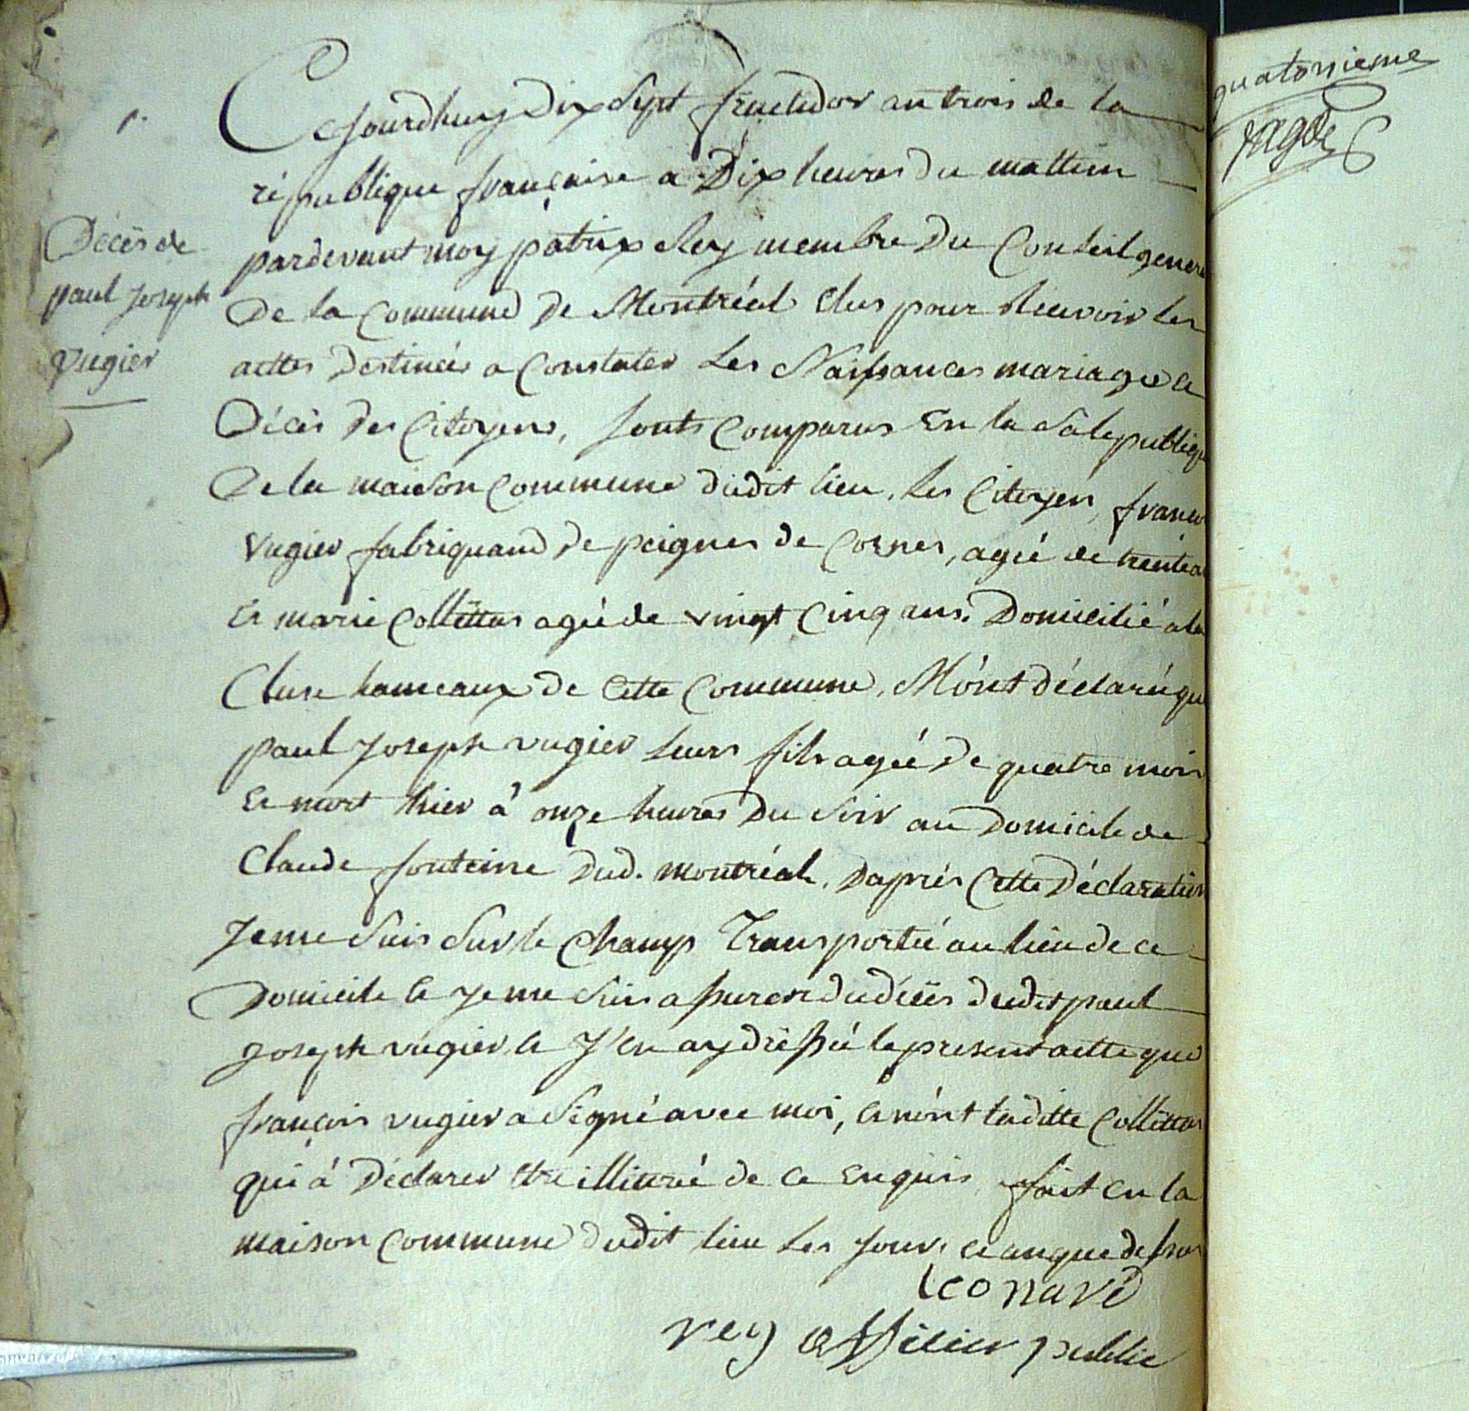 Décès de
paul Joseph
vugier
Cejourdhuy Dix Sept fructidor an trois de la
république française a Dix heures du mattin
pardevant moy patrix Rey membre Du Conseil genera
De la Commune de Montréal Elus pour Recevoir les
actes Destinées a Constater Les Naissances mariage e
Décès des Citoyens, sonts Comparus En la Sale publiqu
De la maison Commune dudit lieu, les Citoyen, francoi
vugier fabriquand de peignes de Cornes, agé de trente a
et marie Collettas agée de vingt Cinq ans. Domicilié a la
Cluse hameaux de Cette Commune, M'ont déclaré que
paul Joseph vugier Leurs fils agée De quatre mois
Et mort hier à onze heures Du Soir au Domicile de
Claude fonteine dud. montréal. Daprés Cette Déclaration
Je me Suis Sur le Champ Transportée au lieu de ce
Domicile et Je me Suis assuree du décès dudit paul
Joseph vugier et J'en ay dressé le present acte que
françois vugier a Signé avec moi, et nont laditte Collettas
qui à Déclarer être illiteré de ce Enquis, fait en la
maison Commune dudit lieu Les Jour, et an que dessus
Leonard
rey officier public
quatorzieme
page